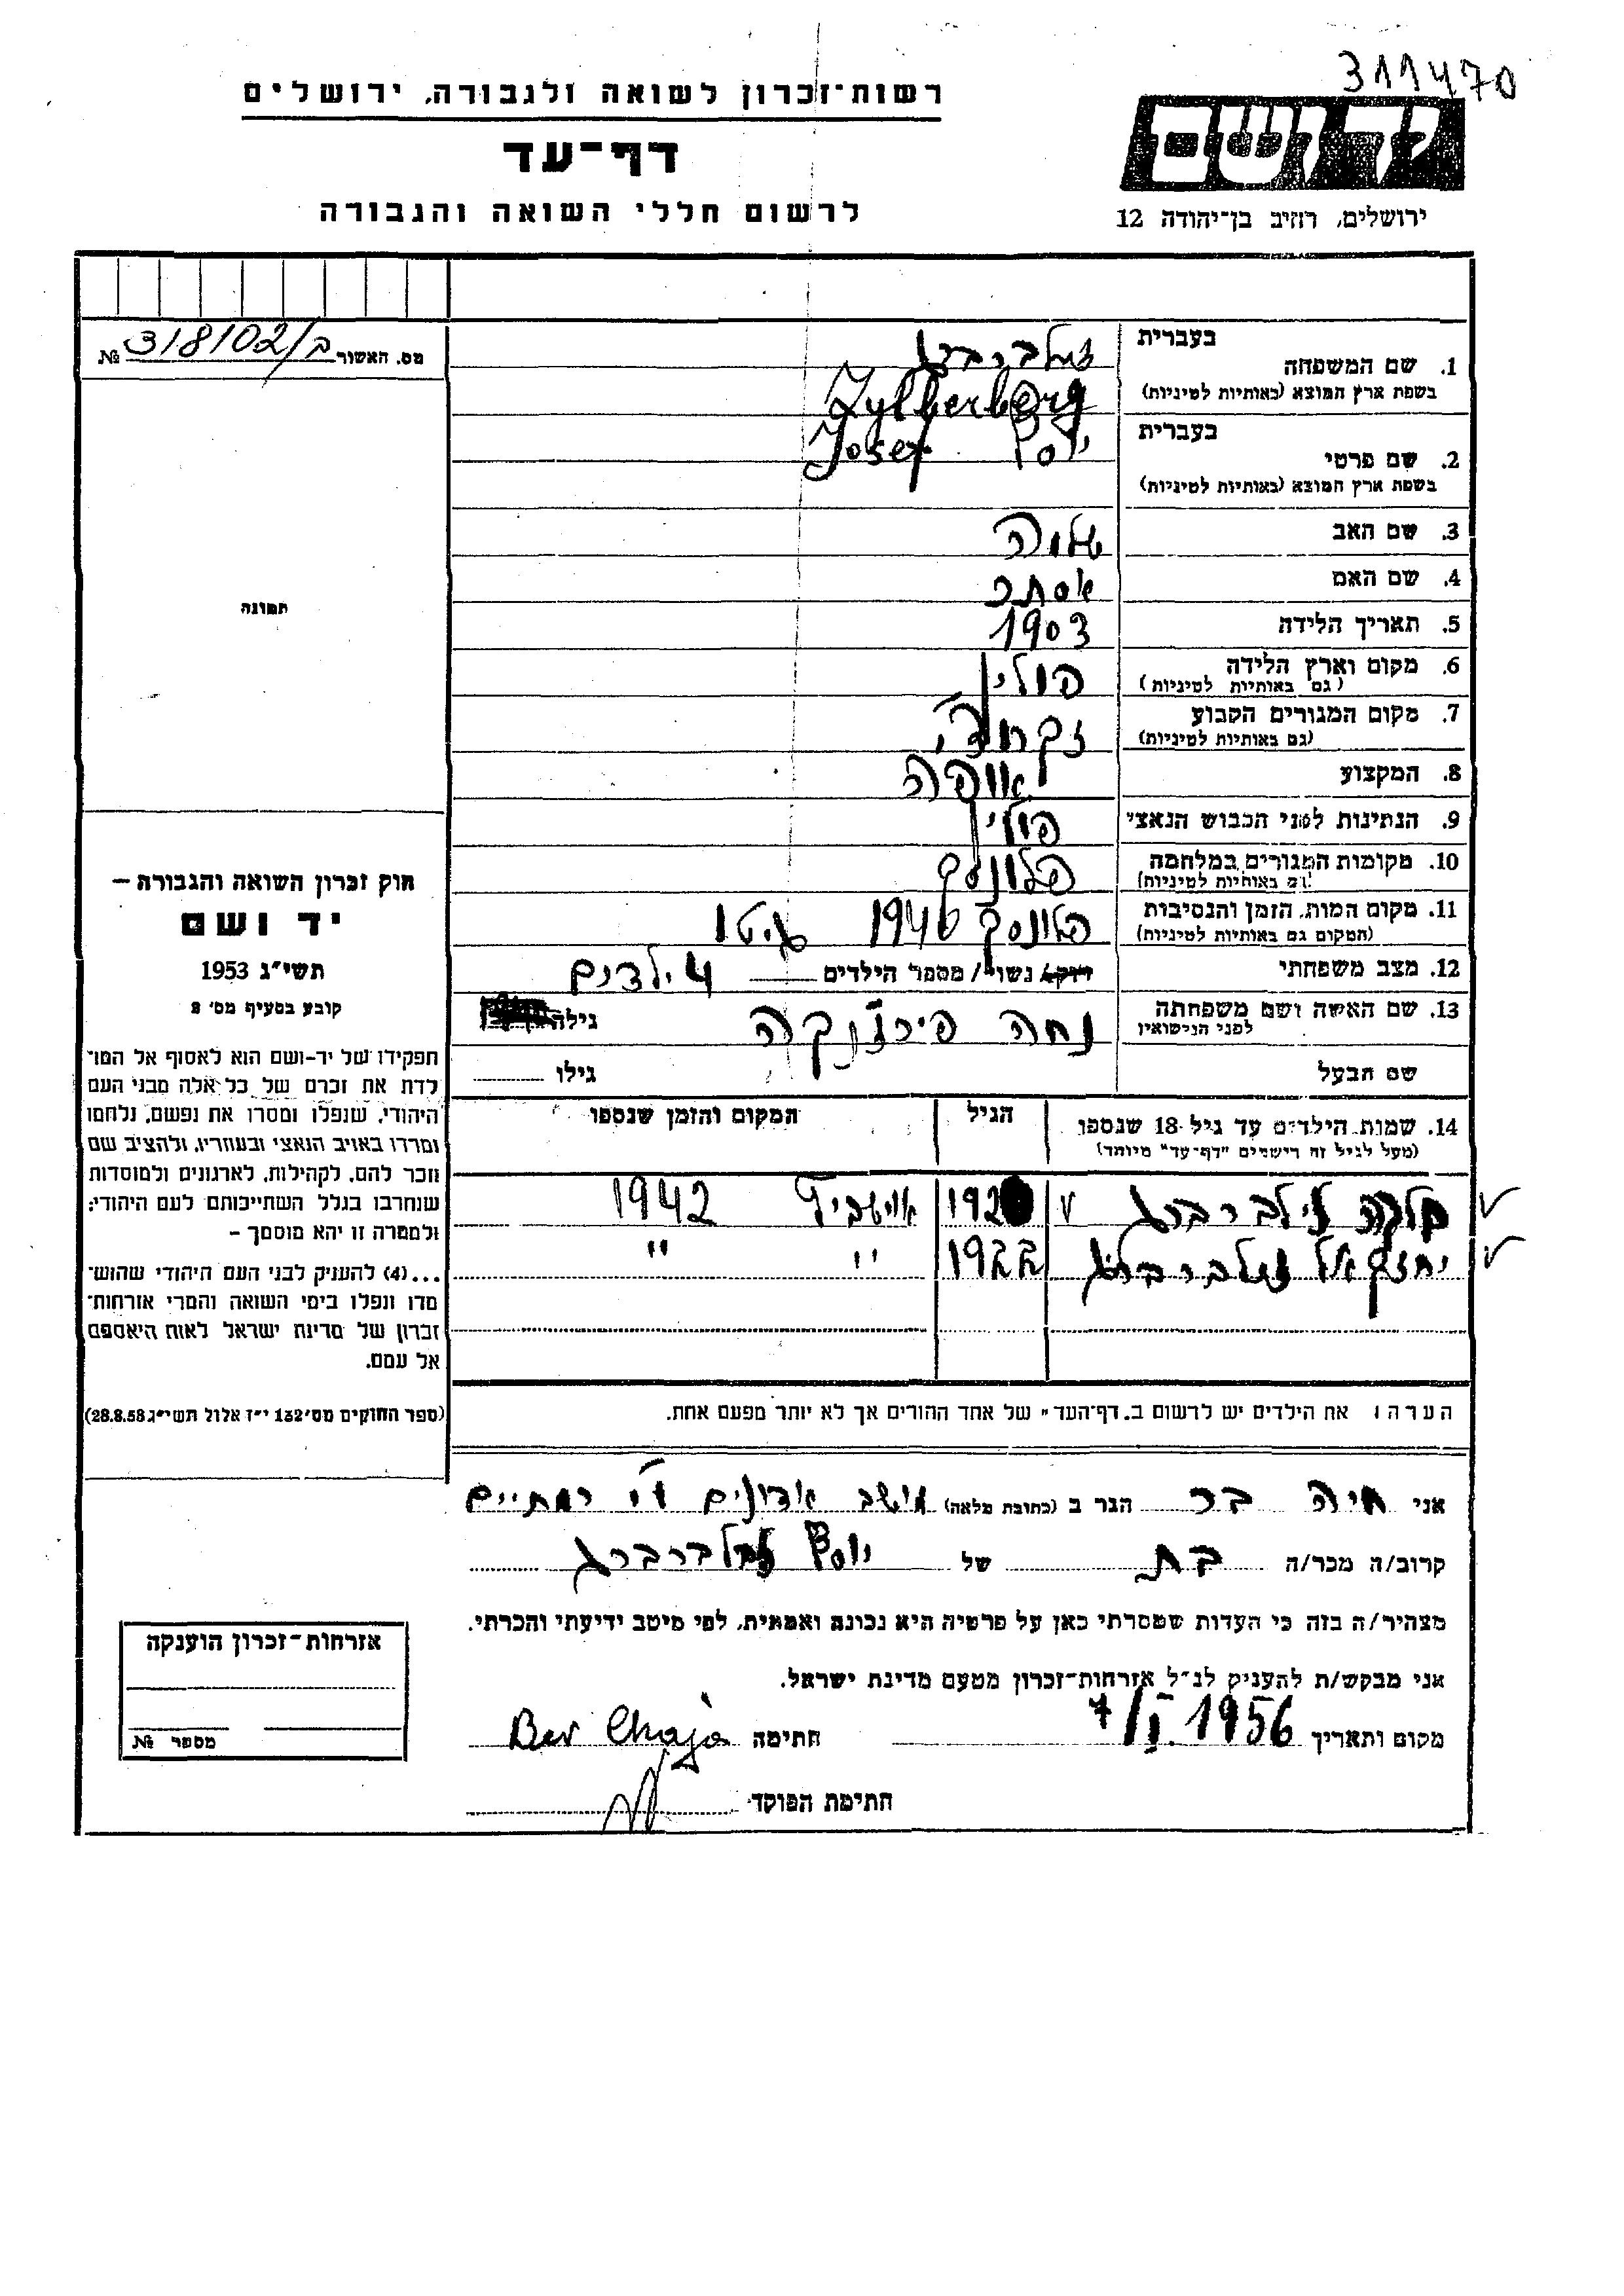 311470
רשות-זכרון לשואה ולגבורה, ירושלים
יד ושם
דף-עד
לרשום חללי השואה והגבורה
ירושלים, רחוב בן-יהודה 12
מס. האשור ב/318102 №
בעברית
1. שם המשפחה זילברברג
בשפת ארץ המוצא (באותיות לטיניות) Zylberberg
בעברית
2. שם פרטי יוסף Josef
בשפת ארץ המוצא (באותיות לטיניות)
3. שם האב שלמה
4. שם האם אסתר
5. תאריך הלידה 1903
6. מקום וארץ הלידה פולין
(גם באותיות לטיניות)
7. מקום המגורים הקבוע
(גם באותיות לטיניות)
8. המקצוע אופה
9. הנתינות לפני הכבוש הנאצי פולין
10. מקומות המגורים במלחמה פלונסק
(גם באותיות לטיניות)
11. מקום המות, הזמן והנסיבות פלונסק 1940 גיטו
(המקום גם באותיות לטיניות)
12. מצב משפחתי רווק/ נשוי / מספר הילדים 4 ילדים
13. שם האשה ושם משפחתה נחה
לפני הנישואין
גילה
שם הבעל
גילו
תמונה
14. שמות הילדים עד גיל 18 שנספו
(מעל לגיל זה רישמים "דף-עד" מיוחד)
הגיל
המקום והזמן שנספו
מלכה זילברברג V 192 אושביץ 1942
יחזקאל זילברברג 1922 " "
הערה: את הילדים יש לרשום ב"דף-העד" של אחד ההורים אך לא יותר מפעם אחת.
חוק זכרון השואה והגבורה –
יד ושם
תשי"ג 1953
קובע בסעיף מס' 2
תפקידו של יד-ושם הוא לאסוף אל המו-
לדת את זכרם של כל אלה מבני העם
היהודי, שנפלו ומסרו את נפשם, נלחמו
ומרדו באויב הנאצי ובעוזריו, ולהציב שם
וזכר להם, לקהילות, לארגונים ולמוסדות
שנחרבו בגלל השתייכותם לעם היהודי;
ולמטרה זו יהא מוסמך –
...(4) להעניק לבני העם היהודי שהוש-
מדו ונפלו בימי השואה והמרי אזרחות-
זכרון של מדינת ישראל לאות היאספם
אל עמם.
(ספר החוקים מס' 132 י"ז אלול תשי"ג 28.8.53)
אני חיה בר הגר ב (כתובת מלאה) מושב
קרוב/ה מכר/ה בת של יוסף זילברברג
מצהיר/ה בזה כי העדות שמסרתי כאן על פרטיה היא נכונה ואמתית, לפי מיטב ידיעתי והכרתי.
אני מבקש/ת להעניק לנ"ל אזרחות-זכרון מטעם מדינת ישראל.
מקום ותאריך 7/I.1956 חתימה Ber Chaja
חתימת הפוקד
אזרחות-זכרון הוענקה
מספר №